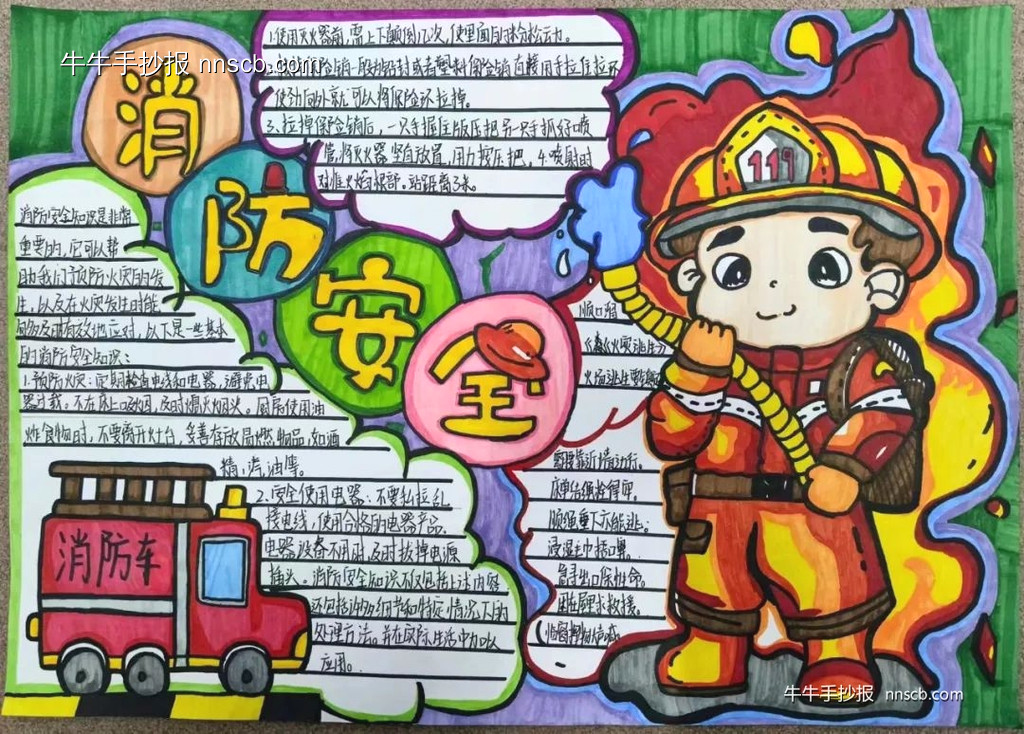 牛牛手抄报 nnscb.com
消
防
安
全
1.使用灭火器前,需上下颠倒几次,使里面的干粉松动。
使劲向外就可以将保险环拉掉。
3、拉掉保险销后,一只手握住版压把另一只手抓好喷
管,将灭火器竖直放置,用力按压把。4.喷射时
对准火焰根部。站距离3米。
消防安全知识是非常
重要的,它可以帮
助我们预防火灾的发
生,以及在火灾发生时能
够及时有效地应对,以下是一些基本
的消防安全知识:
1.预防火灾:定期检查电线和电器,避免电
器过载。不在床上吸烟,及时熄灭烟头。厨房使用油
炸食物时,不要离开灶台,妥善存放易燃物品,如酒
精,汽油等。
2.安全使用电器:不要私拉乱
接电线,使用合格的电器产品.
电器设备不用时,及时拔掉电源
插头。消防安全知识不仅包括上述内容
还包括许多细节和特定情况下的
处理方法。并在实际生活中加以
应用。
消防车
119
顺口溜
火灾逃生
火场逃生
湿巾捂口鼻。
急寻出口保性命。
求救援。
牛牛手抄报 nnscb.com